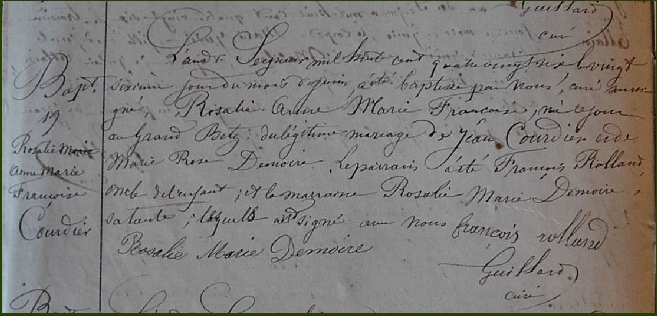 Guillard
curé
L'an du Seigneur mil huit cent quatre vingt six le vingt
Bapt.
sixième jour du mois de juin, a été baptisée par nous, curé soussi
19
gné, Rosalie Anne Marie Françoise, née le jour
Rosalie Marie
au Grand Betz: du légitime mariage de Jean Courdier et de
Anne Marie
Marie Rose Demoire. Le parrain a été François Rolland
Françoise
oncle de l'enfant; et la marraine Rosalie Marie Demoire,
Courdier
sa tante; lesquels ont signé avec nous françois rolland
Rosalie Marie Demoire
Guillard
curé